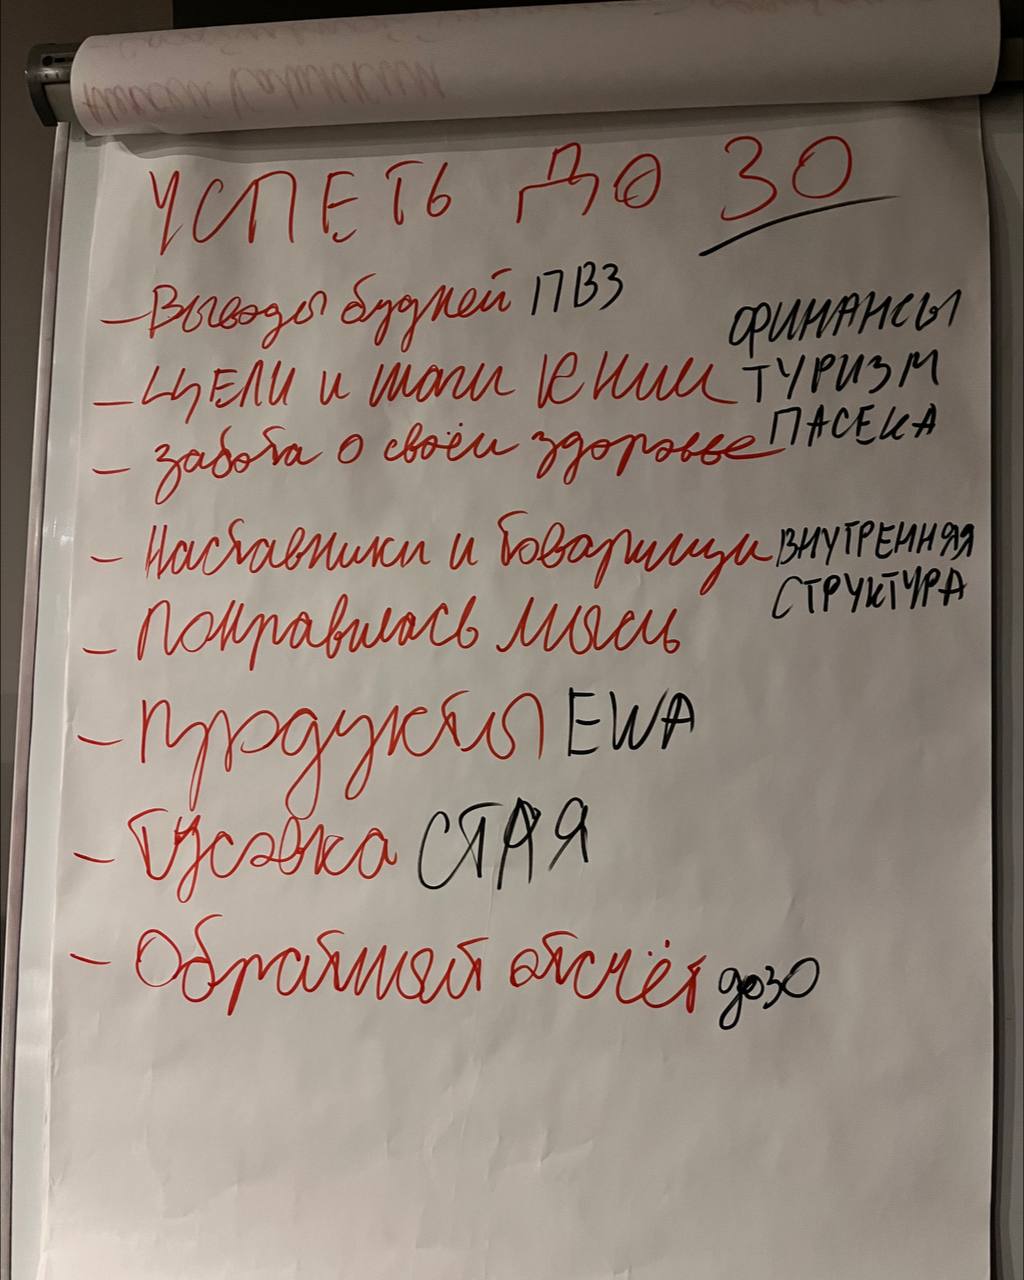 УСПЕТЬ ДО 30
- Выводы будней ПВЗ
- ЦЕЛИ и шаги к ним ФИНАНСЫ
ТУРИЗМ
ПАСЕКА
- забота о своём здоровье
- Наставники и товарищи ВНУТРЕННЯЯ
СТРУКТУРА
- Понравилась мысль
- Продукты EWA
- Тусовка СТАЯ
- Обратный отсчёт до 30